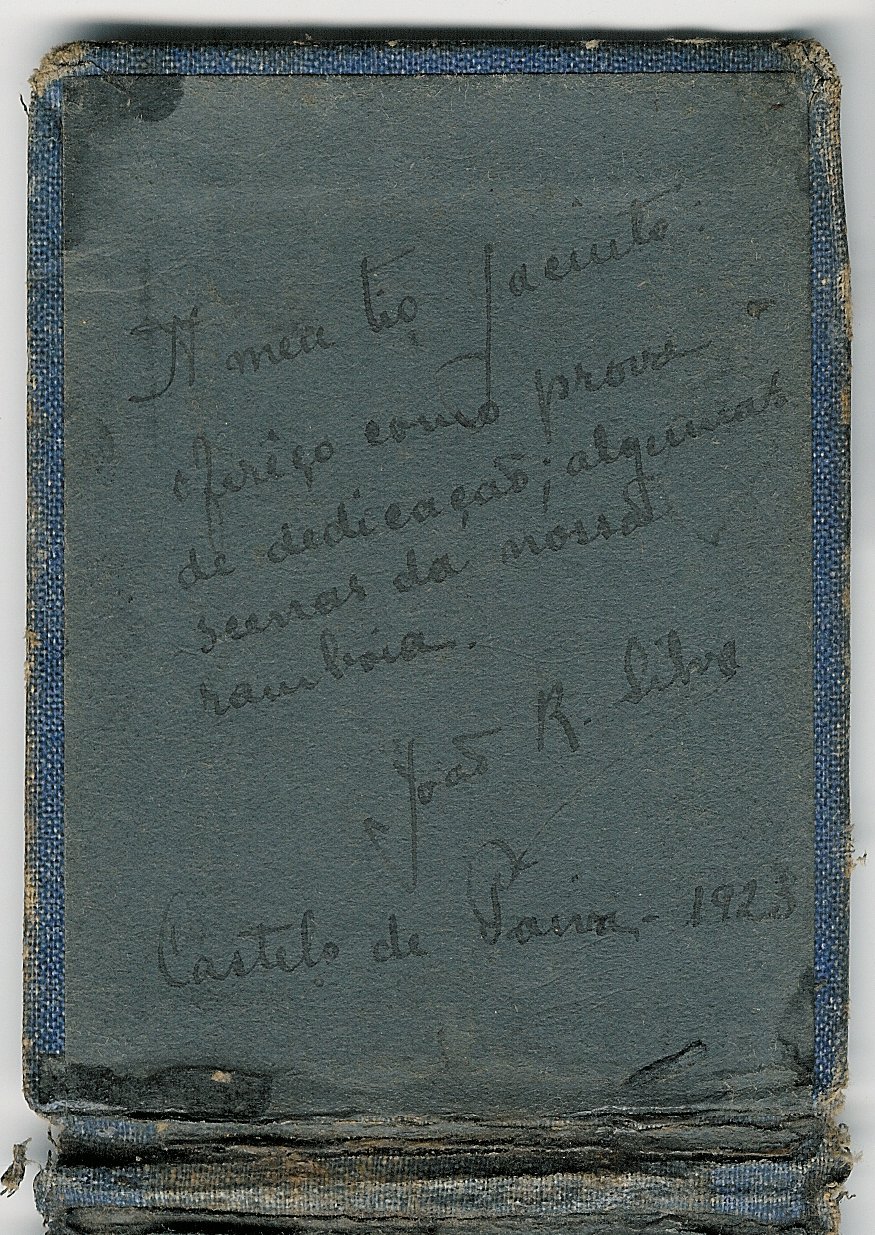 A meu tio Jacinto:
ofereço como prova
de dedicação; algumas
scenas da nossa
ramboia.
João R. Silva
Castelo de Paiva - 1923